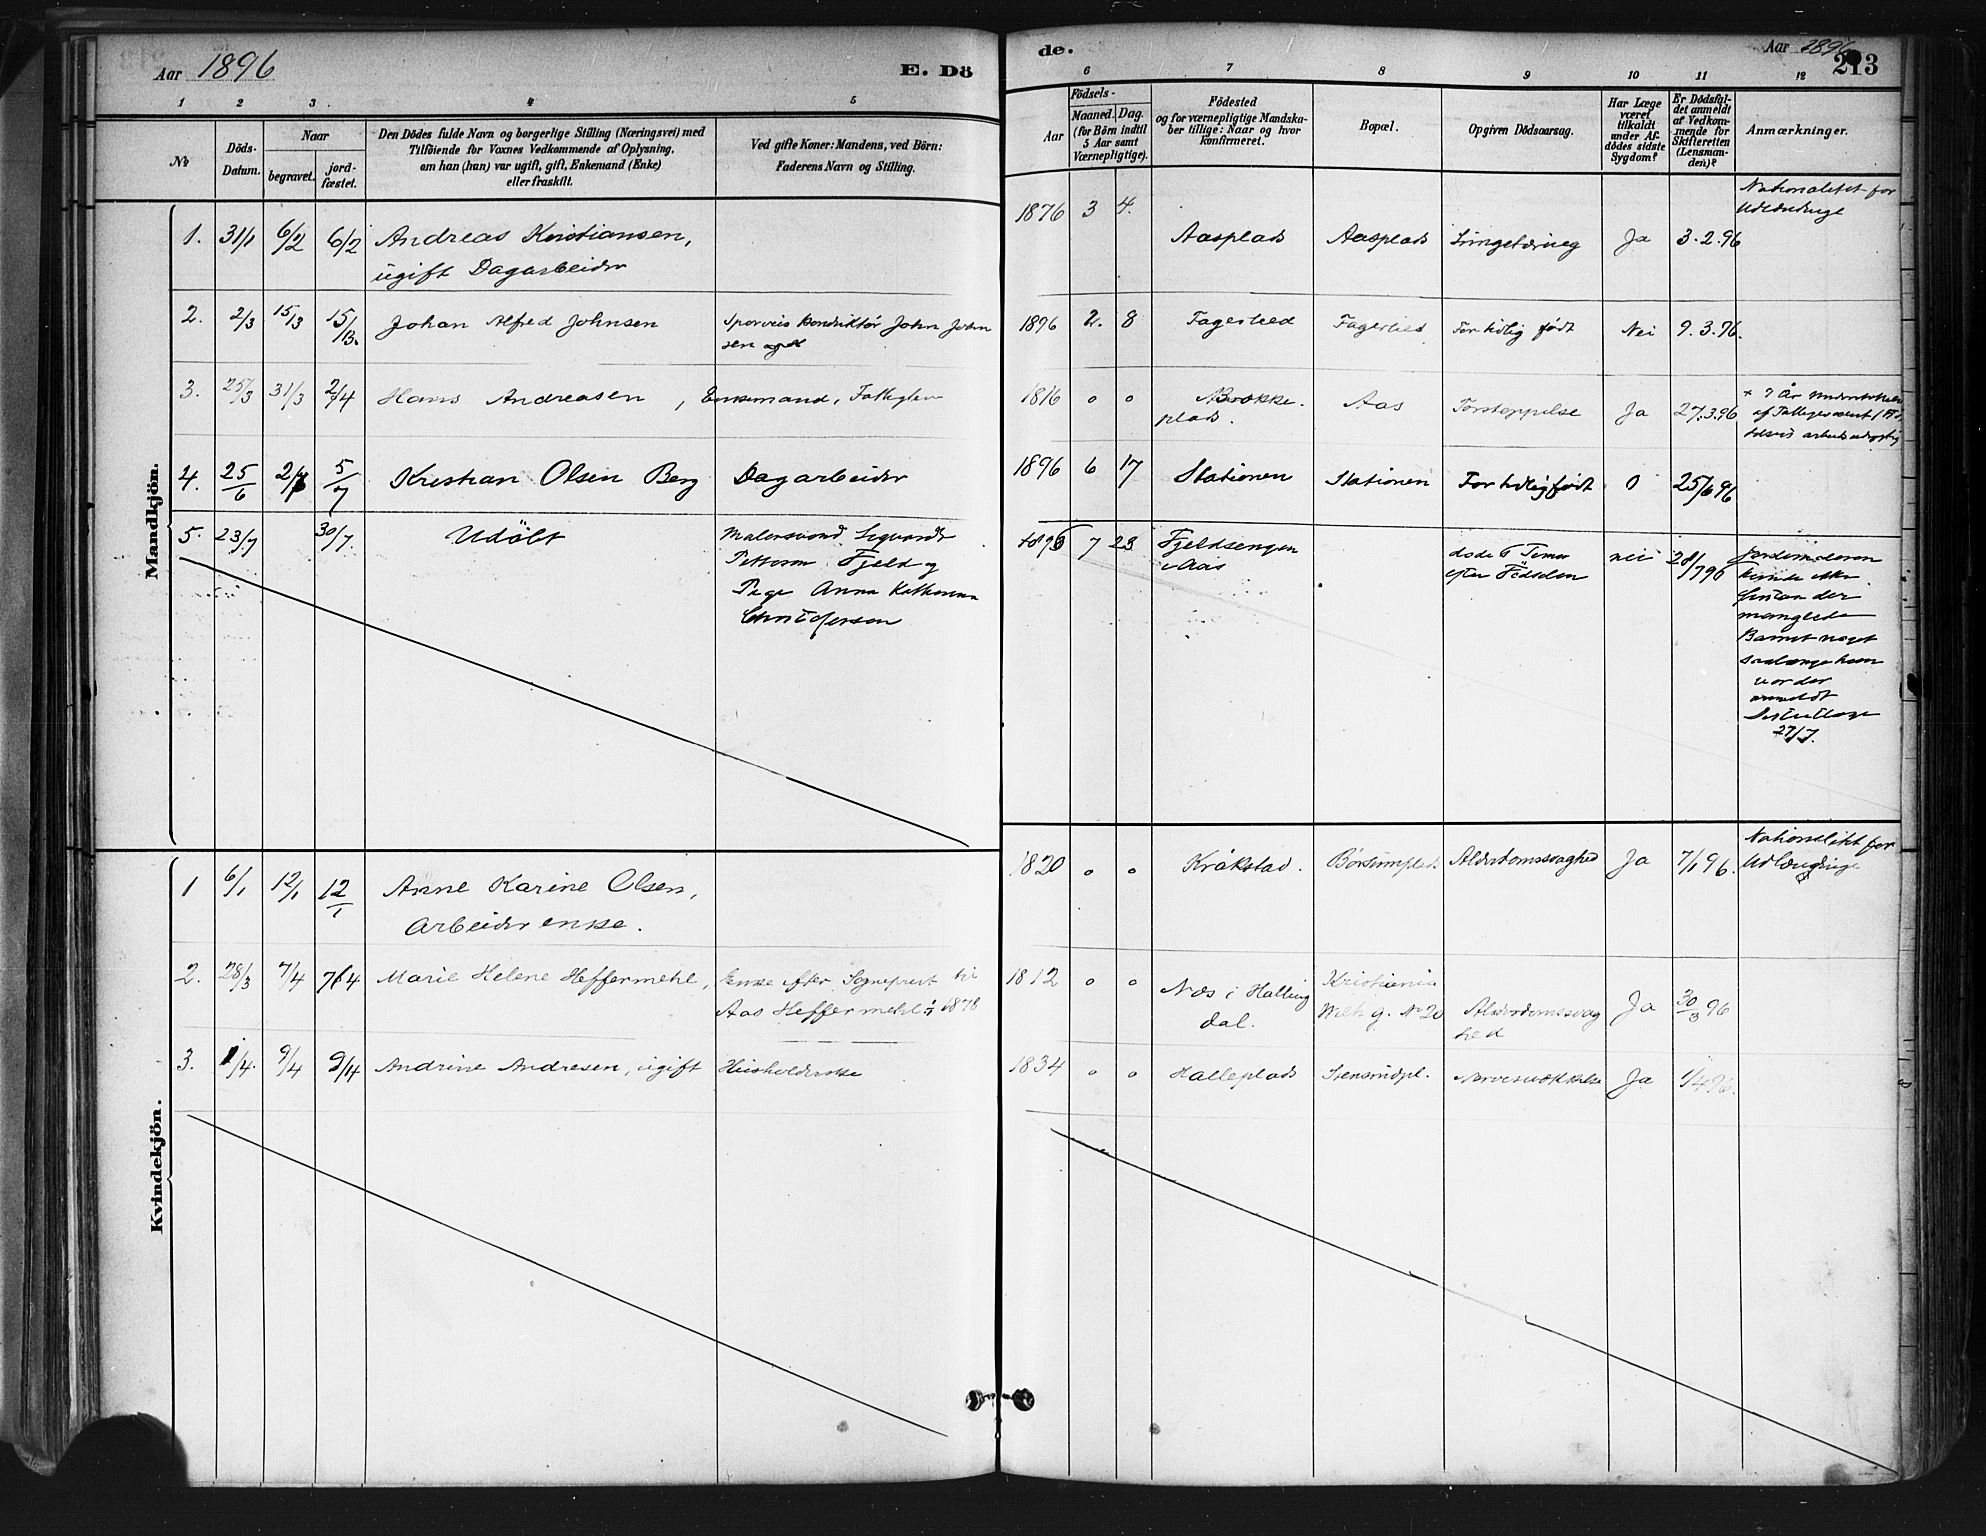 Aar 1896
E. Dö
de.
Aar 1896
213
1 2 3. 4 5
6 7 8 9 10 11 12
No
Döds-
Datum.
Naar
begravet.
jord-
fæstet.
Den Dödes fulde Navn og borgerlige Stilling (Næringsvei) med
Tilföiende for Voxnes Vedkommende af Oplysning,
om han (han) var ugift, gift, Enkemand (Enke)
eller fraskilt.
Ved gifte Koner: Mandens, ved Börn:
Faderens Navn og Stilling.
Födsels-
Aar
Maaned. Dag.
(for Börn indtil
5 Aar samt
Værnepligtige).
Födested
og for værnepligtige Mandska-
ber tillige: Naar og hvor
konfirmeret.
Bopæl.
Opgiven Dödsaarsag.
Har Læge
været
tilkaldt
under Af-
dödes sidste
Sygdom?
Er Dödsfal-
det anmeldt
af Vedkom-
mende for
Skifteretten
(Lensman-
den)?
Anmærkninger.
Mandkjön.
1. 31/1 6/2 6/2 Andreas Kristiansen,
ugift Dagarbeider
1876 3 4. Aasplads Aasplads Ja 3.2.96
Nationalitet for
2. 2/3 15/3 15/3. Johan Alfred Johnsen
Sporveis Konduktör John John
sen
1896 2. 8 For tidlig født Nei 9.3.96.
3. 25/3 31/3 2/4 Hans Andreasen, Enkemand, Fattiglem
1816 o o Brække-
plads. Aas Forstoppelse Ja 27.3.96
4. 25/6 2/7 5/7 Kristian Olsen Berg Dagarbeider
1896 6 17 Stationen Stationen For tidlig født 0 25/6 96
5. 23/7 30/7. Udöbt
Malersvend Sigvardt
Petterson Fjeld og
Pige Anna Katharina
Christoferson
1896 7 23 Fjeldsengen
i Aas
döde 6 Timer
efter Födselen
nei 28/7 96
Jordemoderen
kunde ikke
der
manglede
Barnet noget
saalænge hun
var der
anmeldt
27/7.
Kvindekjön.
1 6/1 12/1 12/1 Anne Karine Olsen,
Arbeider enke.
1820 o o Kråkstad. Børsumplads Alderdomssvaghed Ja 7/1 96.
Nationalitet for
Udlændinge
2. 28/3 7/4 7/4 Marie Helene Heffermehl, Enke efter Sogneprest til
Aas Heffermehl 1878
1812 o o Næs i Halling
dal.
Kristiania
No 20
Alderdomssvag
hed
Ja 30/3 96
3. 1/4. 9/4 9/4 Andrine Andresen, ugift Husholderske
1834 o o Halleplads Stensrudpl. Ja 1/4 96.